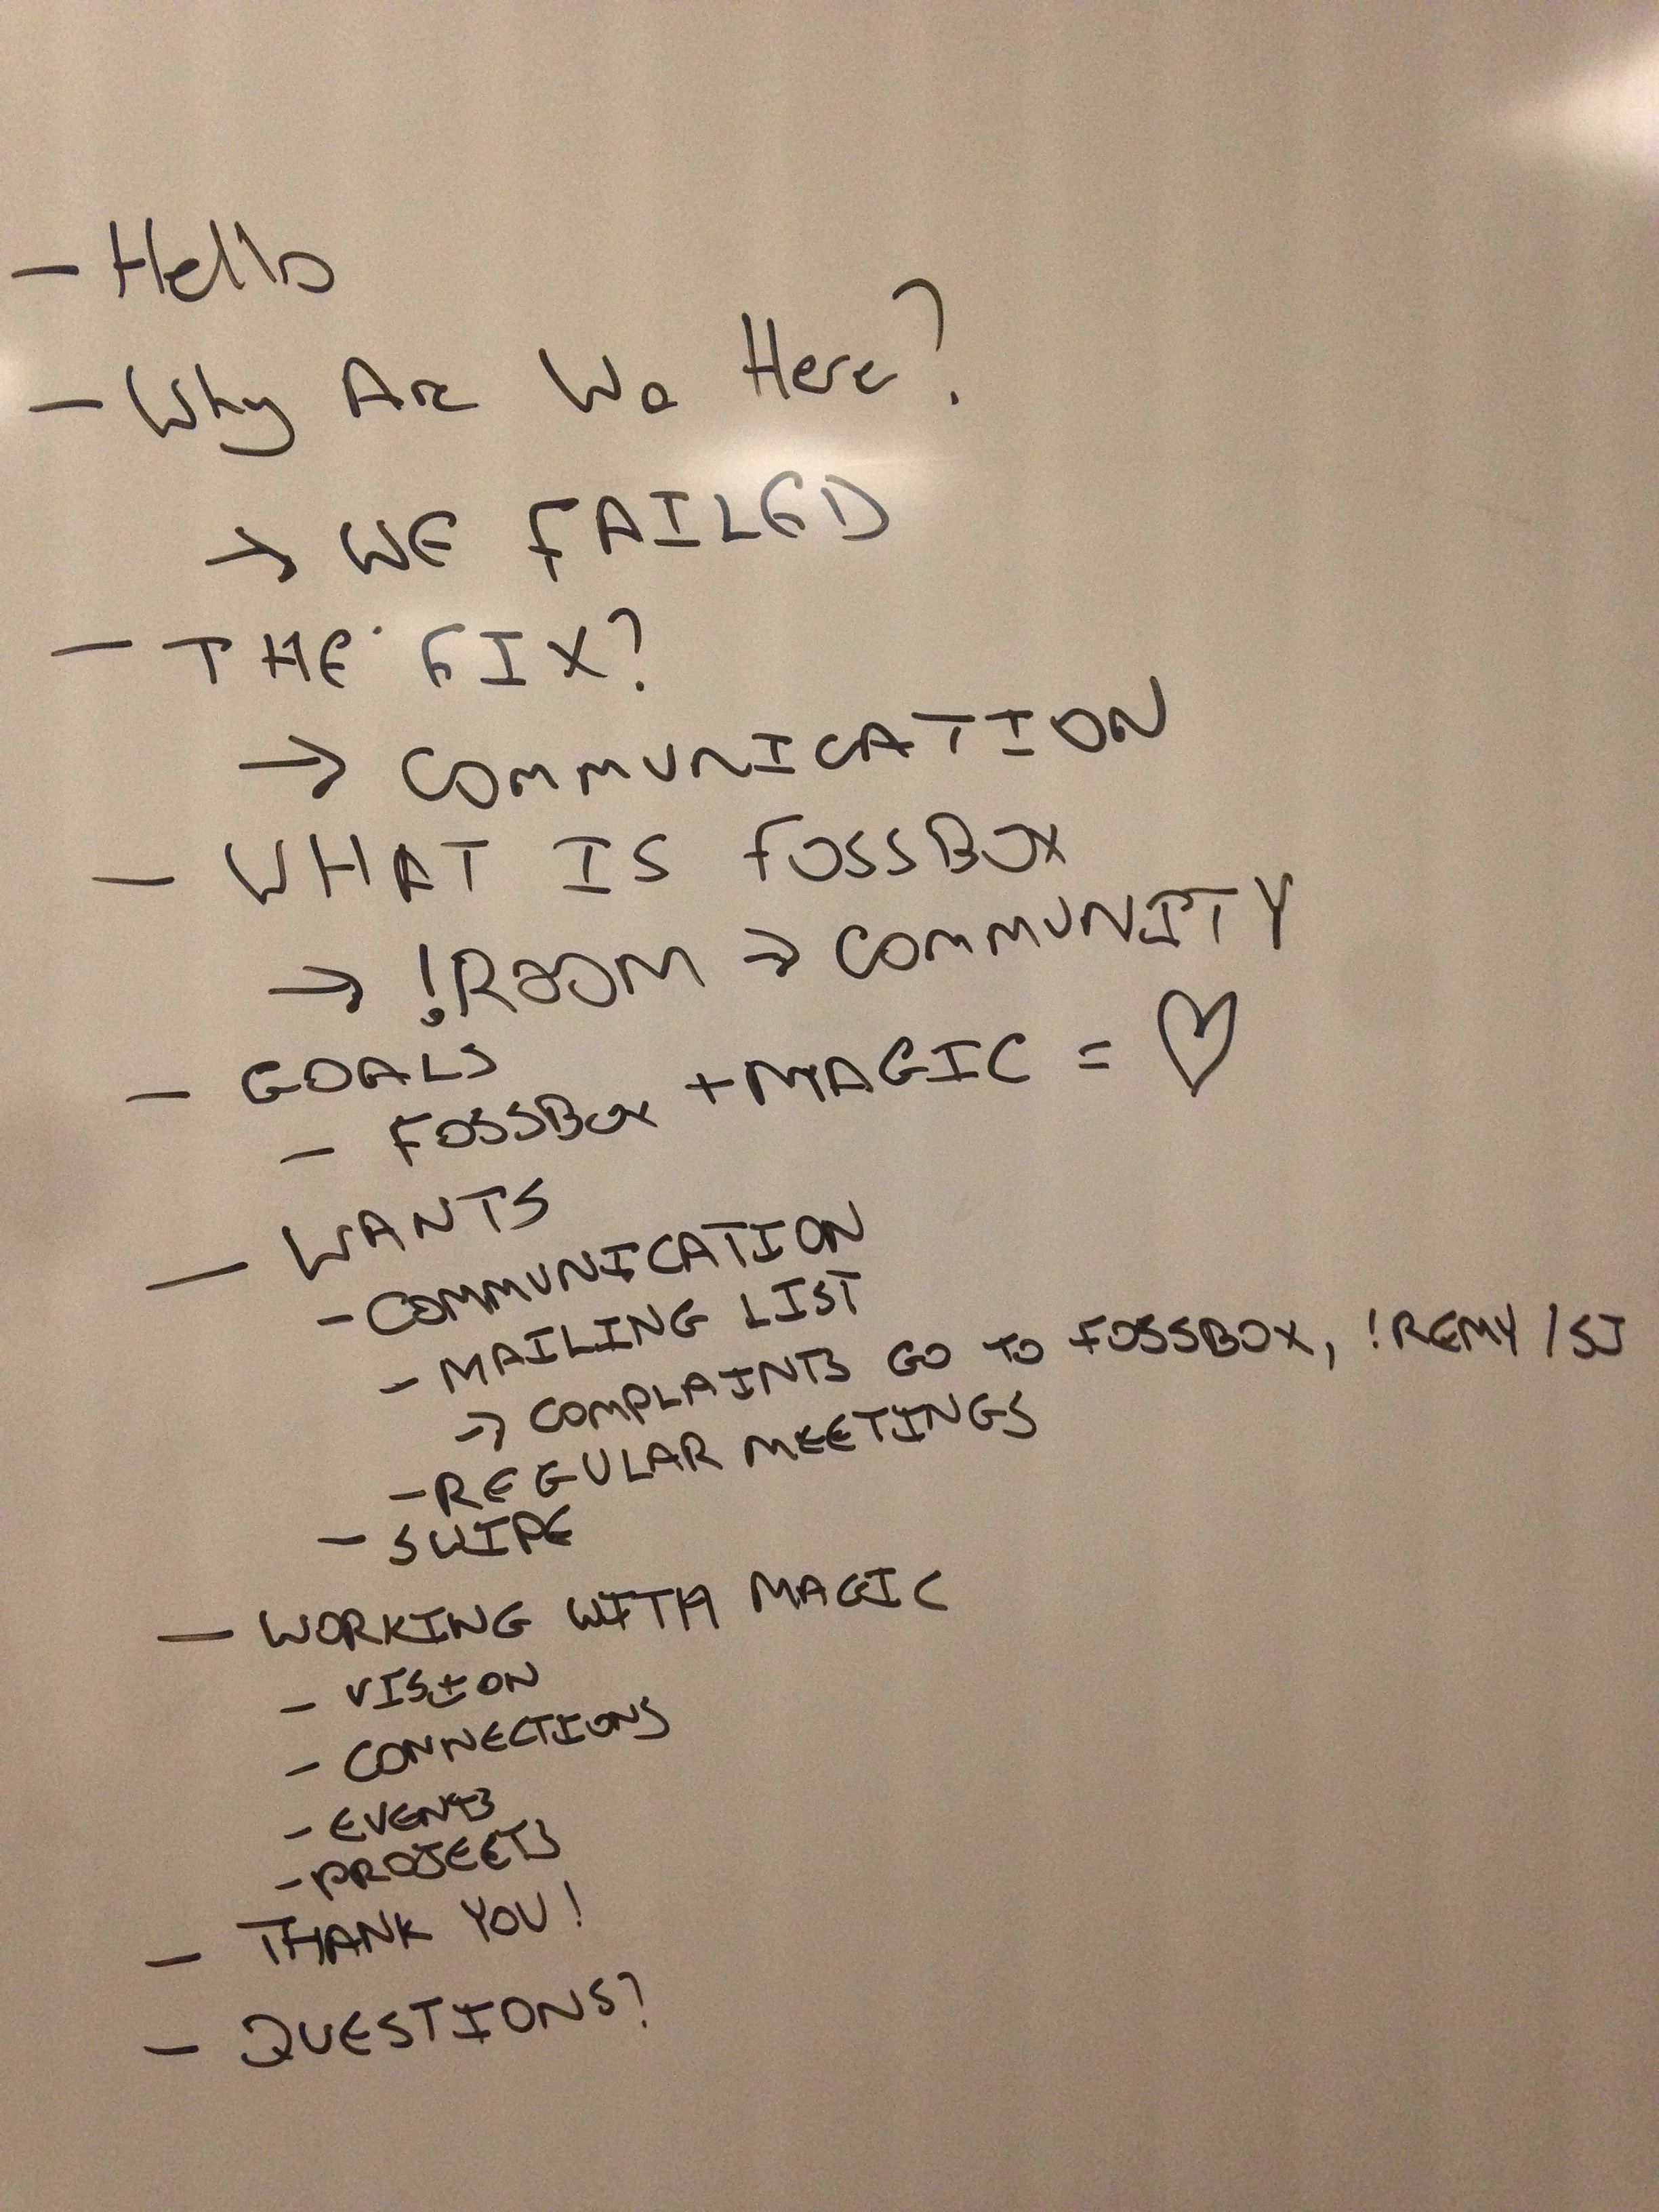 - Hello
- Why Are We Here?
→ WE FAILED
- THE FIX?
→ COMMUNICATION
- WHAT IS FOSSBOX
→ !ROOM → COMMUNITY
- GOALS
- FOSSBOX + MAGIC = ♡
- WANTS
- COMMUNICATION
- MAILING LIST
→ COMPLAINTS GO TO FOSSBOX, !REMY/SJ
- REGULAR MEETINGS
- SWIPE
- WORKING WITH MAGIC
- VISION
- CONNECTIONS
- EVENTS
- PROJECTS
- THANK YOU!
- QUESTIONS?